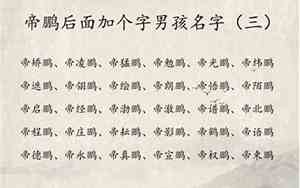 帝鹏后面加个字男孩名字（三）
帝矫鹏、帝凌鹏、帝猛鹏、帝勉鹏、帝光鹏、帝纬鹏
帝进鹏、帝钥鹏、帝绘鹏、帝朗鹏、帝悟鹏、帝陌鹏
帝启鹏、帝经鹏、帝渤鹏、帝澈鹏、帝谱鹏、帝北鹏
帝程鹏、帝庄鹏、帝耘鹏、帝影鹏、帝鹤鹏、帝语鹏
帝德鹏、帝永鹏、帝真鹏、帝宣鹏、帝权鹏、帝来鹏